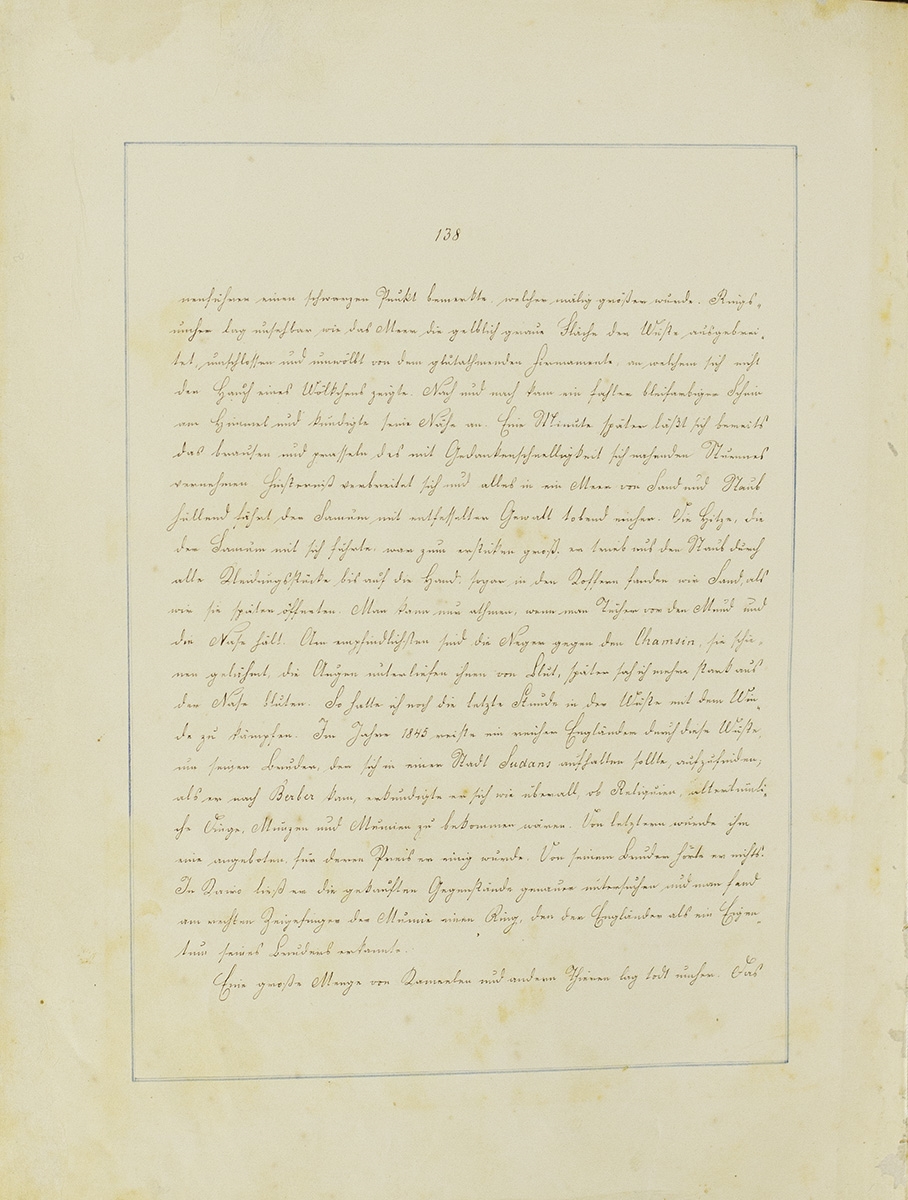 138
nenführer einen schwarzen Punkt bemerkte, welcher mälig größer wurde. Rings-
umher lag unsehbar wie das Meer die gelblich graue Fläche der Wüste ausgebrei-
tet, umschlossen und umwölbt von dem glutathmenden Firmamente, an welchem sich nicht
der Hauch eines Wölkchens zeigte. Nach und nach kam ein fahler bleifarbiger Schein
am Himmel und kündigte seine Nähe an. Eine Minute später läßt sich bereits
das brausen und prasseln des mit Gedankenschnelligkeit sich nahenden Sturmes
vernehmen. Finsterniß verbreitet sich und alles in ein Meer von Sand und Staub
hüllend fährt der Samum mit entfesselter Gewalt tobend einher. Die Hitze, die
der Samum mit sich führte, war zum ersticken groß, er trieb uns den Staub durch
alle Kleidungsstücke bis auf die Haut, sogar in den Koffern fanden wir Sand, als
wir sie später öffneten. Man kann nur athmen, wenn man Tücher vor den Mund und
die Nase hält. Am empfindlichsten sind die Neger gegen den Chamsin, sie schie-
nen gelähmt, die Augen unterliefen ihnen von Blut, später sah ich mehre stark aus
der Nase bluten. So hatte ich noch die letzte Stunde in der Wüste mit dem Win-
de zu kämpfen. Im Jahre 1845 reiste ein reicher Engländer durch diese Wüste,
um seinen Bruder, der sich in einer Stadt Sudans aufhalten sollte, aufzufinden;
als er nach Berber kam, erkundigte er sich wie überall, ob Reliquien, altertümli-
che Dinge, Münzen und Mumien zu bekommen wären. Von letztern wurde ihm
eine angeboten, für deren Preis er einig wurde. Von seinem Bruder hörte er nichts.
In Kairo ließ er die gekauften Gegenstände genauer untersuchen und man fand
am rechten Zeigefinger der Mumie einen Ring, den der Engländer als ein Eigen-
tum seines Bruders erkannte.
Eine große Menge von Kameelen und andern Thieren lag todt umher. Das